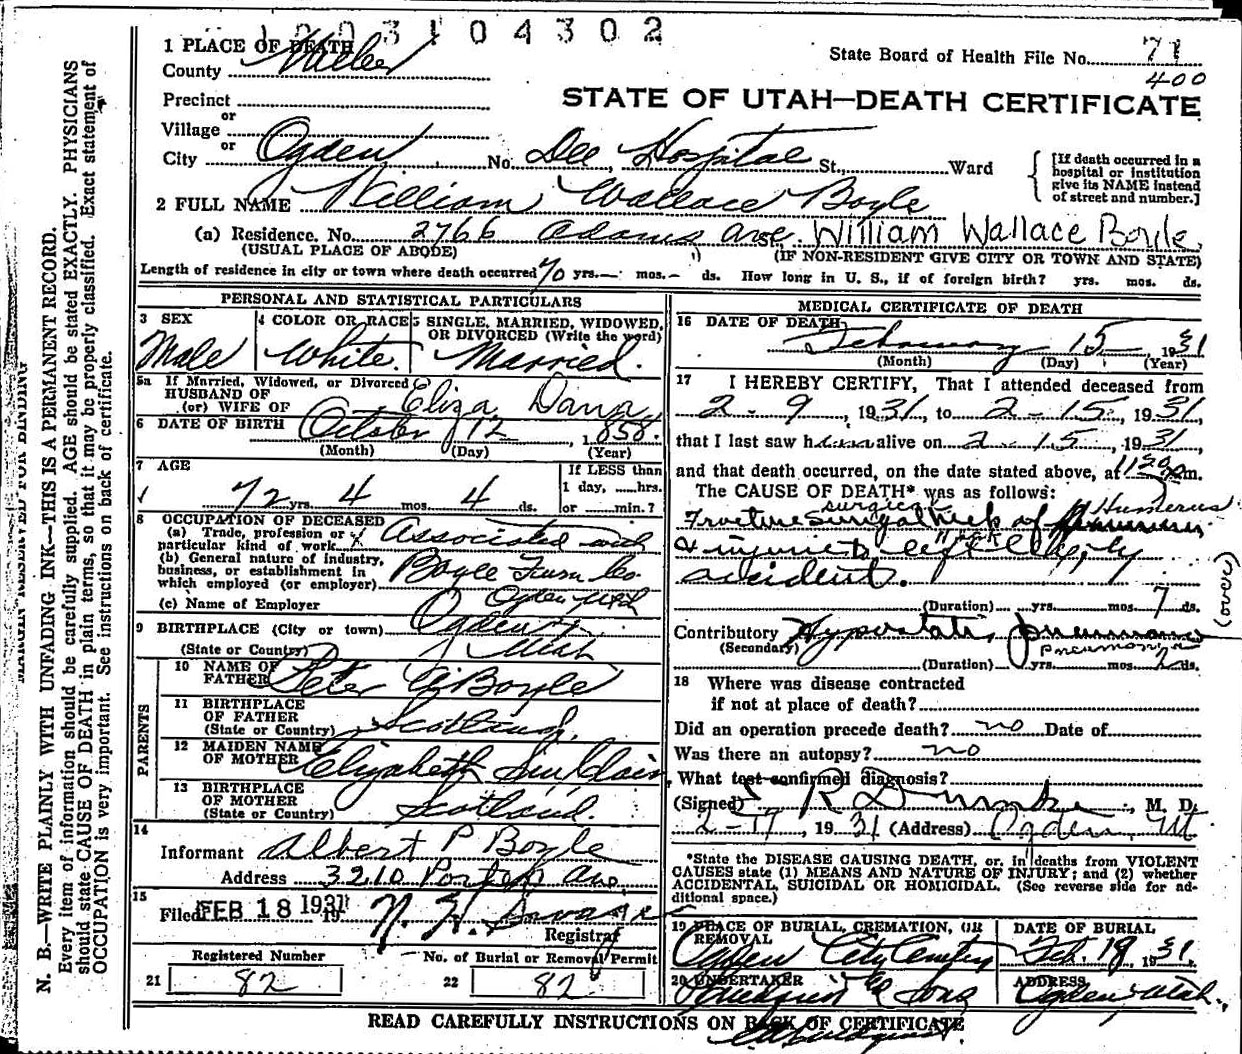 1203104302
1 PLACE OF DEATH
County Weber
State Board of Health File No. 71
400
Precinct
or
Village
or
STATE OF UTAH—DEATH CERTIFICATE
City Ogden No. Dee Hospital St., Ward
[If death occurred in a hospital or institution give its NAME instead of street and number.]
2 FULL NAME William Wallace Boyle
(a) Residence. No. 2766 Adams Ave St., William Wallace Boyle
(USUAL PLACE OF ABODE) (IF NON-RESIDENT GIVE CITY OR TOWN AND STATE)
Length of residence in city or town where death occurred 70 yrs.— mos.— ds. How long in U. S., if of foreign birth? yrs. mos. ds.
PERSONAL AND STATISTICAL PARTICULARS
3 SEX
Male
4 COLOR OR RACE
White
5 SINGLE, MARRIED, WIDOWED, OR DIVORCED (Write the word)
Married
5a If Married, Widowed, or Divorced
HUSBAND OF
(or) WIFE OF
Eliza Dana
6 DATE OF BIRTH October 12, 1858.
(Month) (Day) (Year)
7 AGE
72 yrs. 4 mos. 4 ds.
If LESS than
1 day, ......hrs.
or ......min.?
8 OCCUPATION OF DECEASED
(a) Trade, profession or
particular kind of work Associated and
(b) General nature of industry,
business, or establishment in
which employed (or employer) Boyle Furn Co.
(c) Name of Employer Ogden Utah
9 BIRTHPLACE (City or town) Ogden
(State or Country) Utah
PARENTS
10 NAME OF
FATHER Peter A Boyle
11 BIRTHPLACE
OF FATHER
(State or Country) Scotland.
12 MAIDEN NAME
OF MOTHER Elizabeth Sinclair
13 BIRTHPLACE
OF MOTHER
(State or Country) Scotland.
14
Informant Albert P Boyle
Address 3210 Porter Ave,
15
Filed FEB 18 1931 19
Registrar
Registered Number
21 82
No. of Burial or Removal Permit
22 82
MEDICAL CERTIFICATE OF DEATH
16 DATE OF DEATH
February 15 1931
(Month) (Day) (Year)
17 I HEREBY CERTIFY, That I attended deceased from
2-9, 1931, to 2-15, 1931
that I last saw him alive on 2-15, 1931,
and that death occurred, on the date stated above, at m.
The CAUSE OF DEATH* was as follows:
surgical Humerus
Fracture surgical neck of
accident.
(Duration) yrs. mos. 7 ds.
Contributory Hypostatic pneumonia
(Secondary) pneumonia
(Duration) yrs. mos. 2 ds.
18 Where was disease contracted
if not at place of death?
Did an operation precede death? no Date of
Was there an autopsy? no
What test confirmed diagnosis?
(Signed) R Dumke, M. D.
2-17, 1931 (Address) Ogden, Ut
*State the DISEASE CAUSING DEATH, or, in deaths from VIOLENT
CAUSES state (1) MEANS AND NATURE OF INJURY; and (2) whether
ACCIDENTAL, SUICIDAL OR HOMICIDAL. (See reverse side for additional space.)
19 PLACE OF BURIAL, CREMATION, OR
REMOVAL
Ogden City Cemetery
DATE OF BURIAL
Feb. 18, 1931.
20 UNDERTAKER
Lindquist & Sons
ADDRESS
Ogden Utah.
READ CAREFULLY INSTRUCTIONS ON BACK OF CERTIFICATE
MARGIN RESERVED FOR BINDING
N. B.—WRITE PLAINLY WITH UNFADING INK—THIS IS A PERMANENT RECORD.
Every item of information should be carefully supplied. AGE should be stated EXACTLY. PHYSICIANS
should state CAUSE OF DEATH in plain terms, so that it may be properly classified. Exact statement of
OCCUPATION is very important. See instructions on back of certificate.